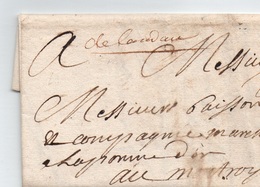 A de Landau Messieu
Messieurs Paisson
& compagnie march
a la pomme d'or
au